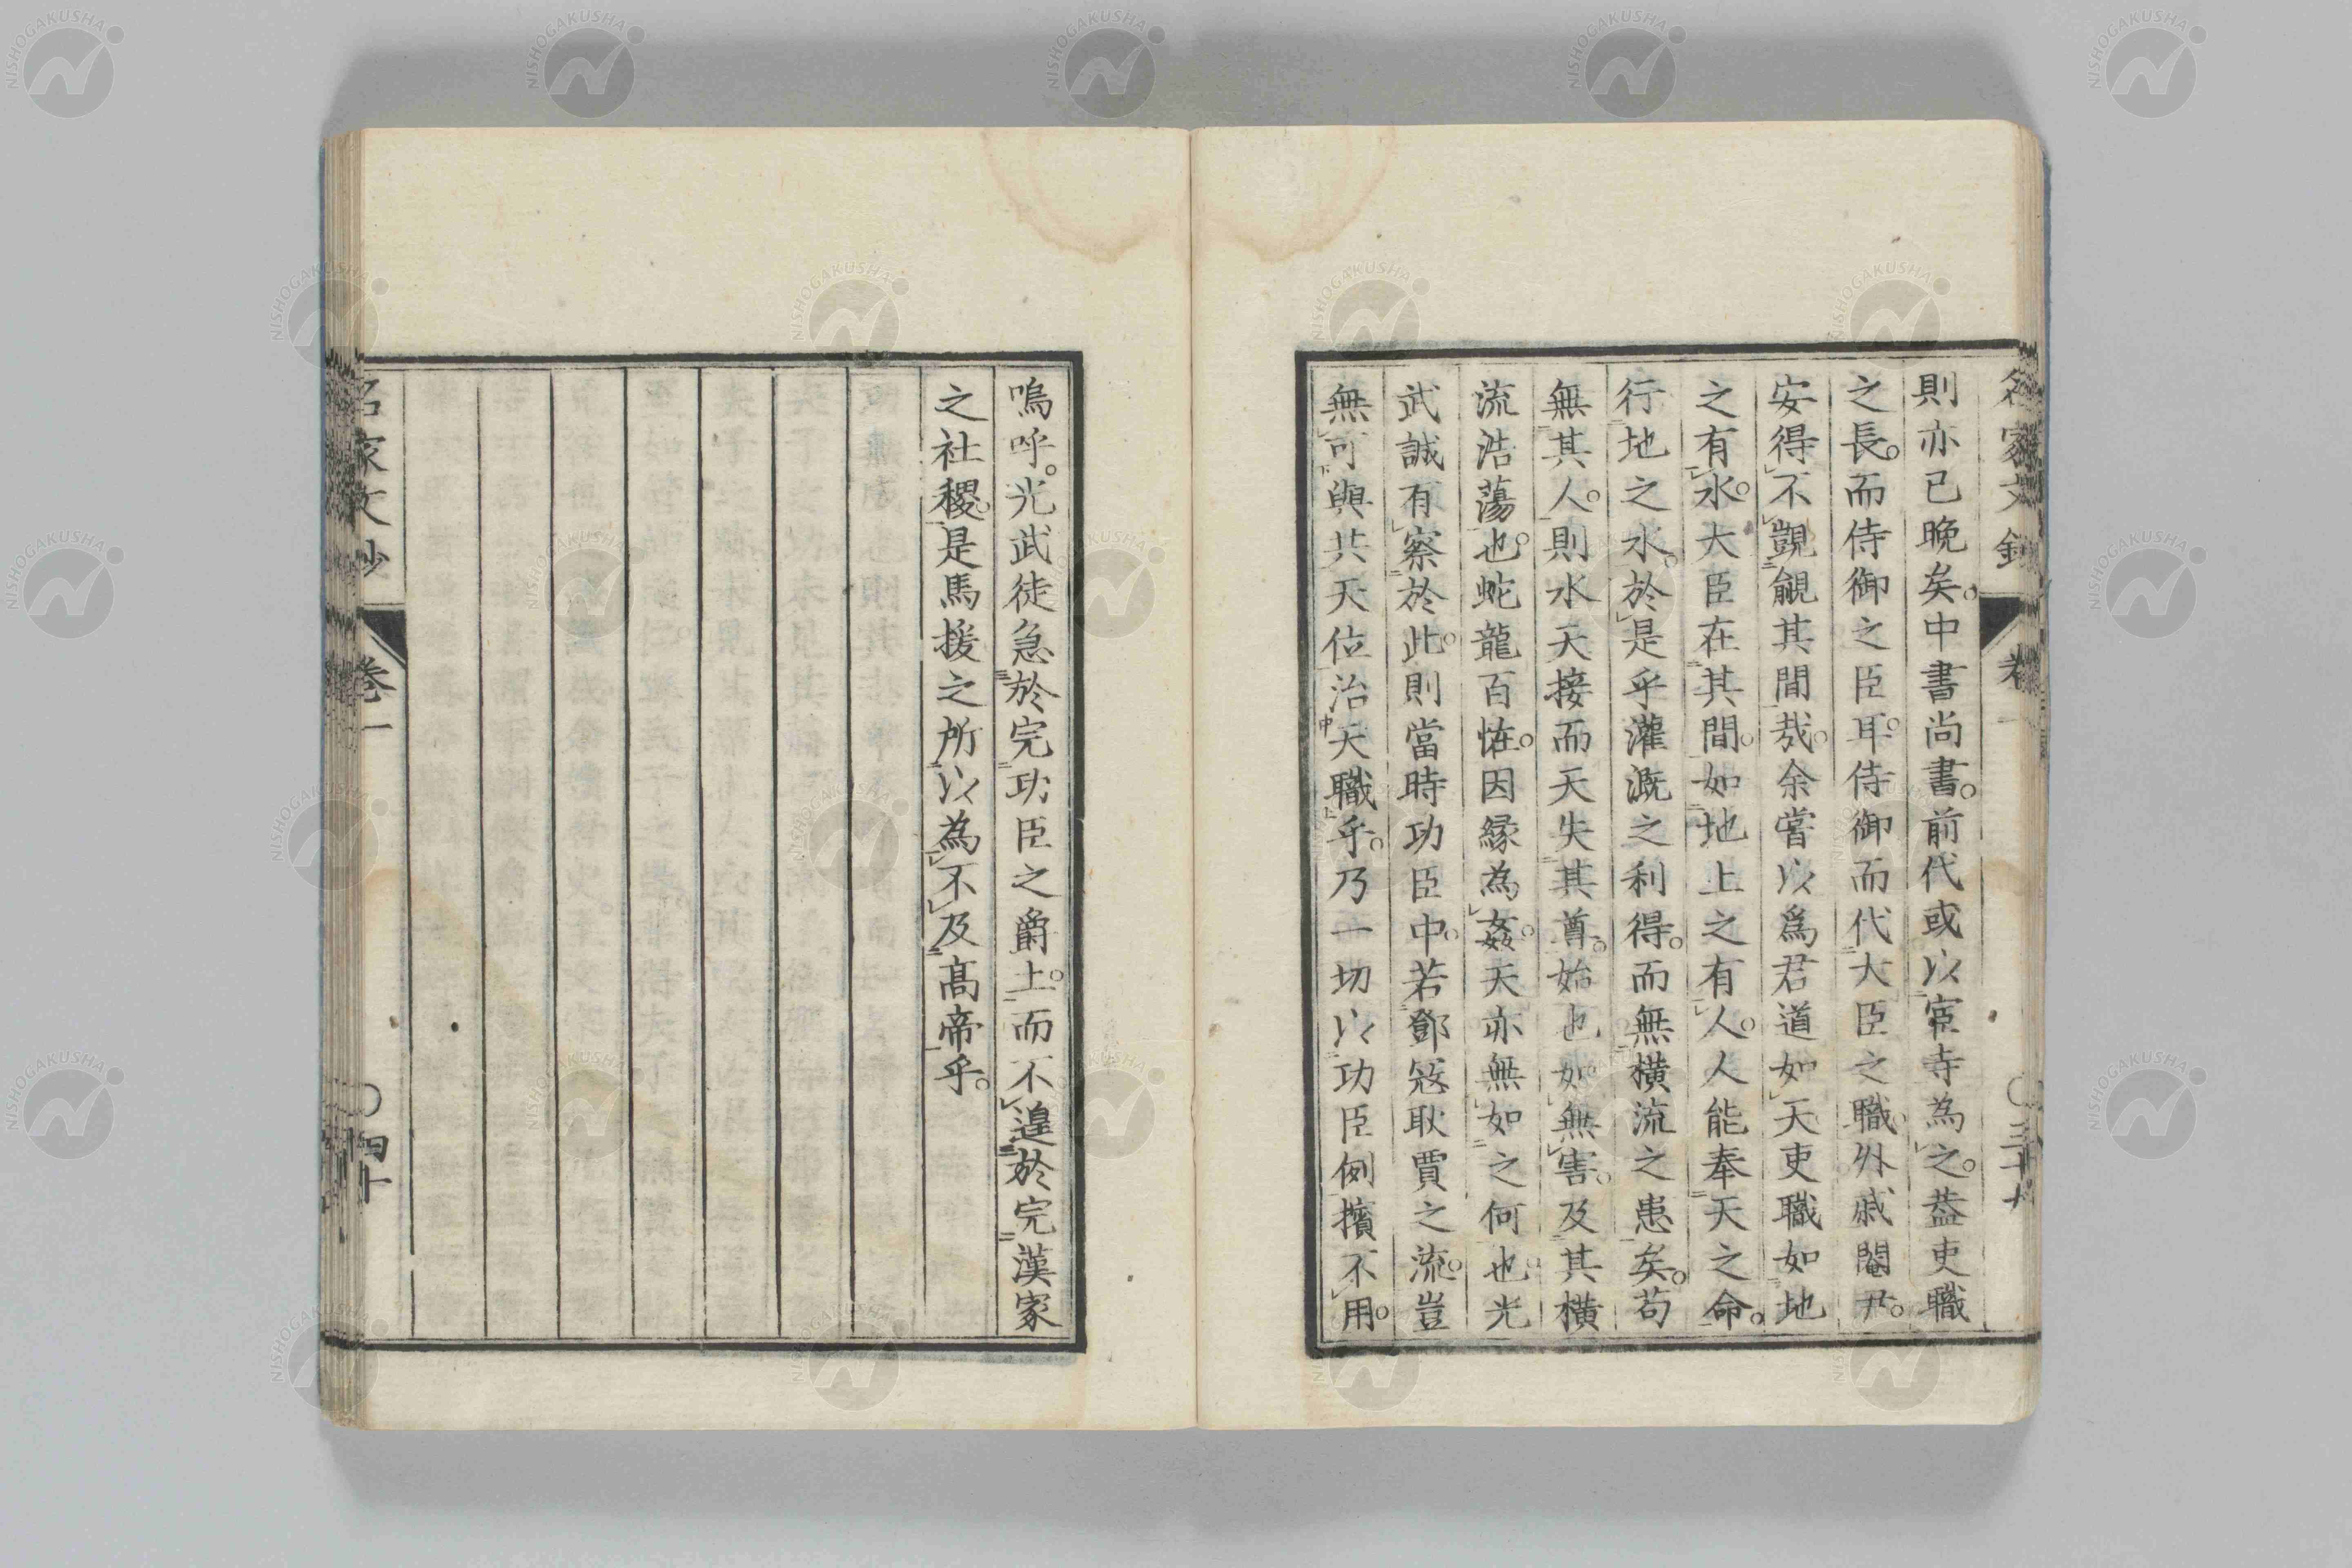 名家文鈔 卷一 〇三十九
則亦已晚矣。中書尚書。前代或以宦寺為之。蓋吏職
之長。而侍御之臣耳。侍御而代大臣之職。外戚閹尹。
安得不覬覦其間哉。余嘗以爲君道如天吏職如地
之有水。大臣在其間。如地上之有人。人能奉天之命。
行地之水。於是乎灌漑之利得。而無橫流之患矣。苟
無其人。則水天接而天失其尊。始也如無害。及其橫
流浩蕩也。蛇龍百怪。因緣為姦。天亦無如之何也。光
武誠有察於此。則當時功臣中。若鄧寇耿賈之流。豈
無可與共天位治天職乎。乃一切以功臣例擯不用。
嗚呼。光武徒急於完功臣之爵土。而不遑於完漢家
之社稷。是馬援之所以為不及高帝乎。
名家文鈔 卷一 〇四十
NISHOGAKUSHA